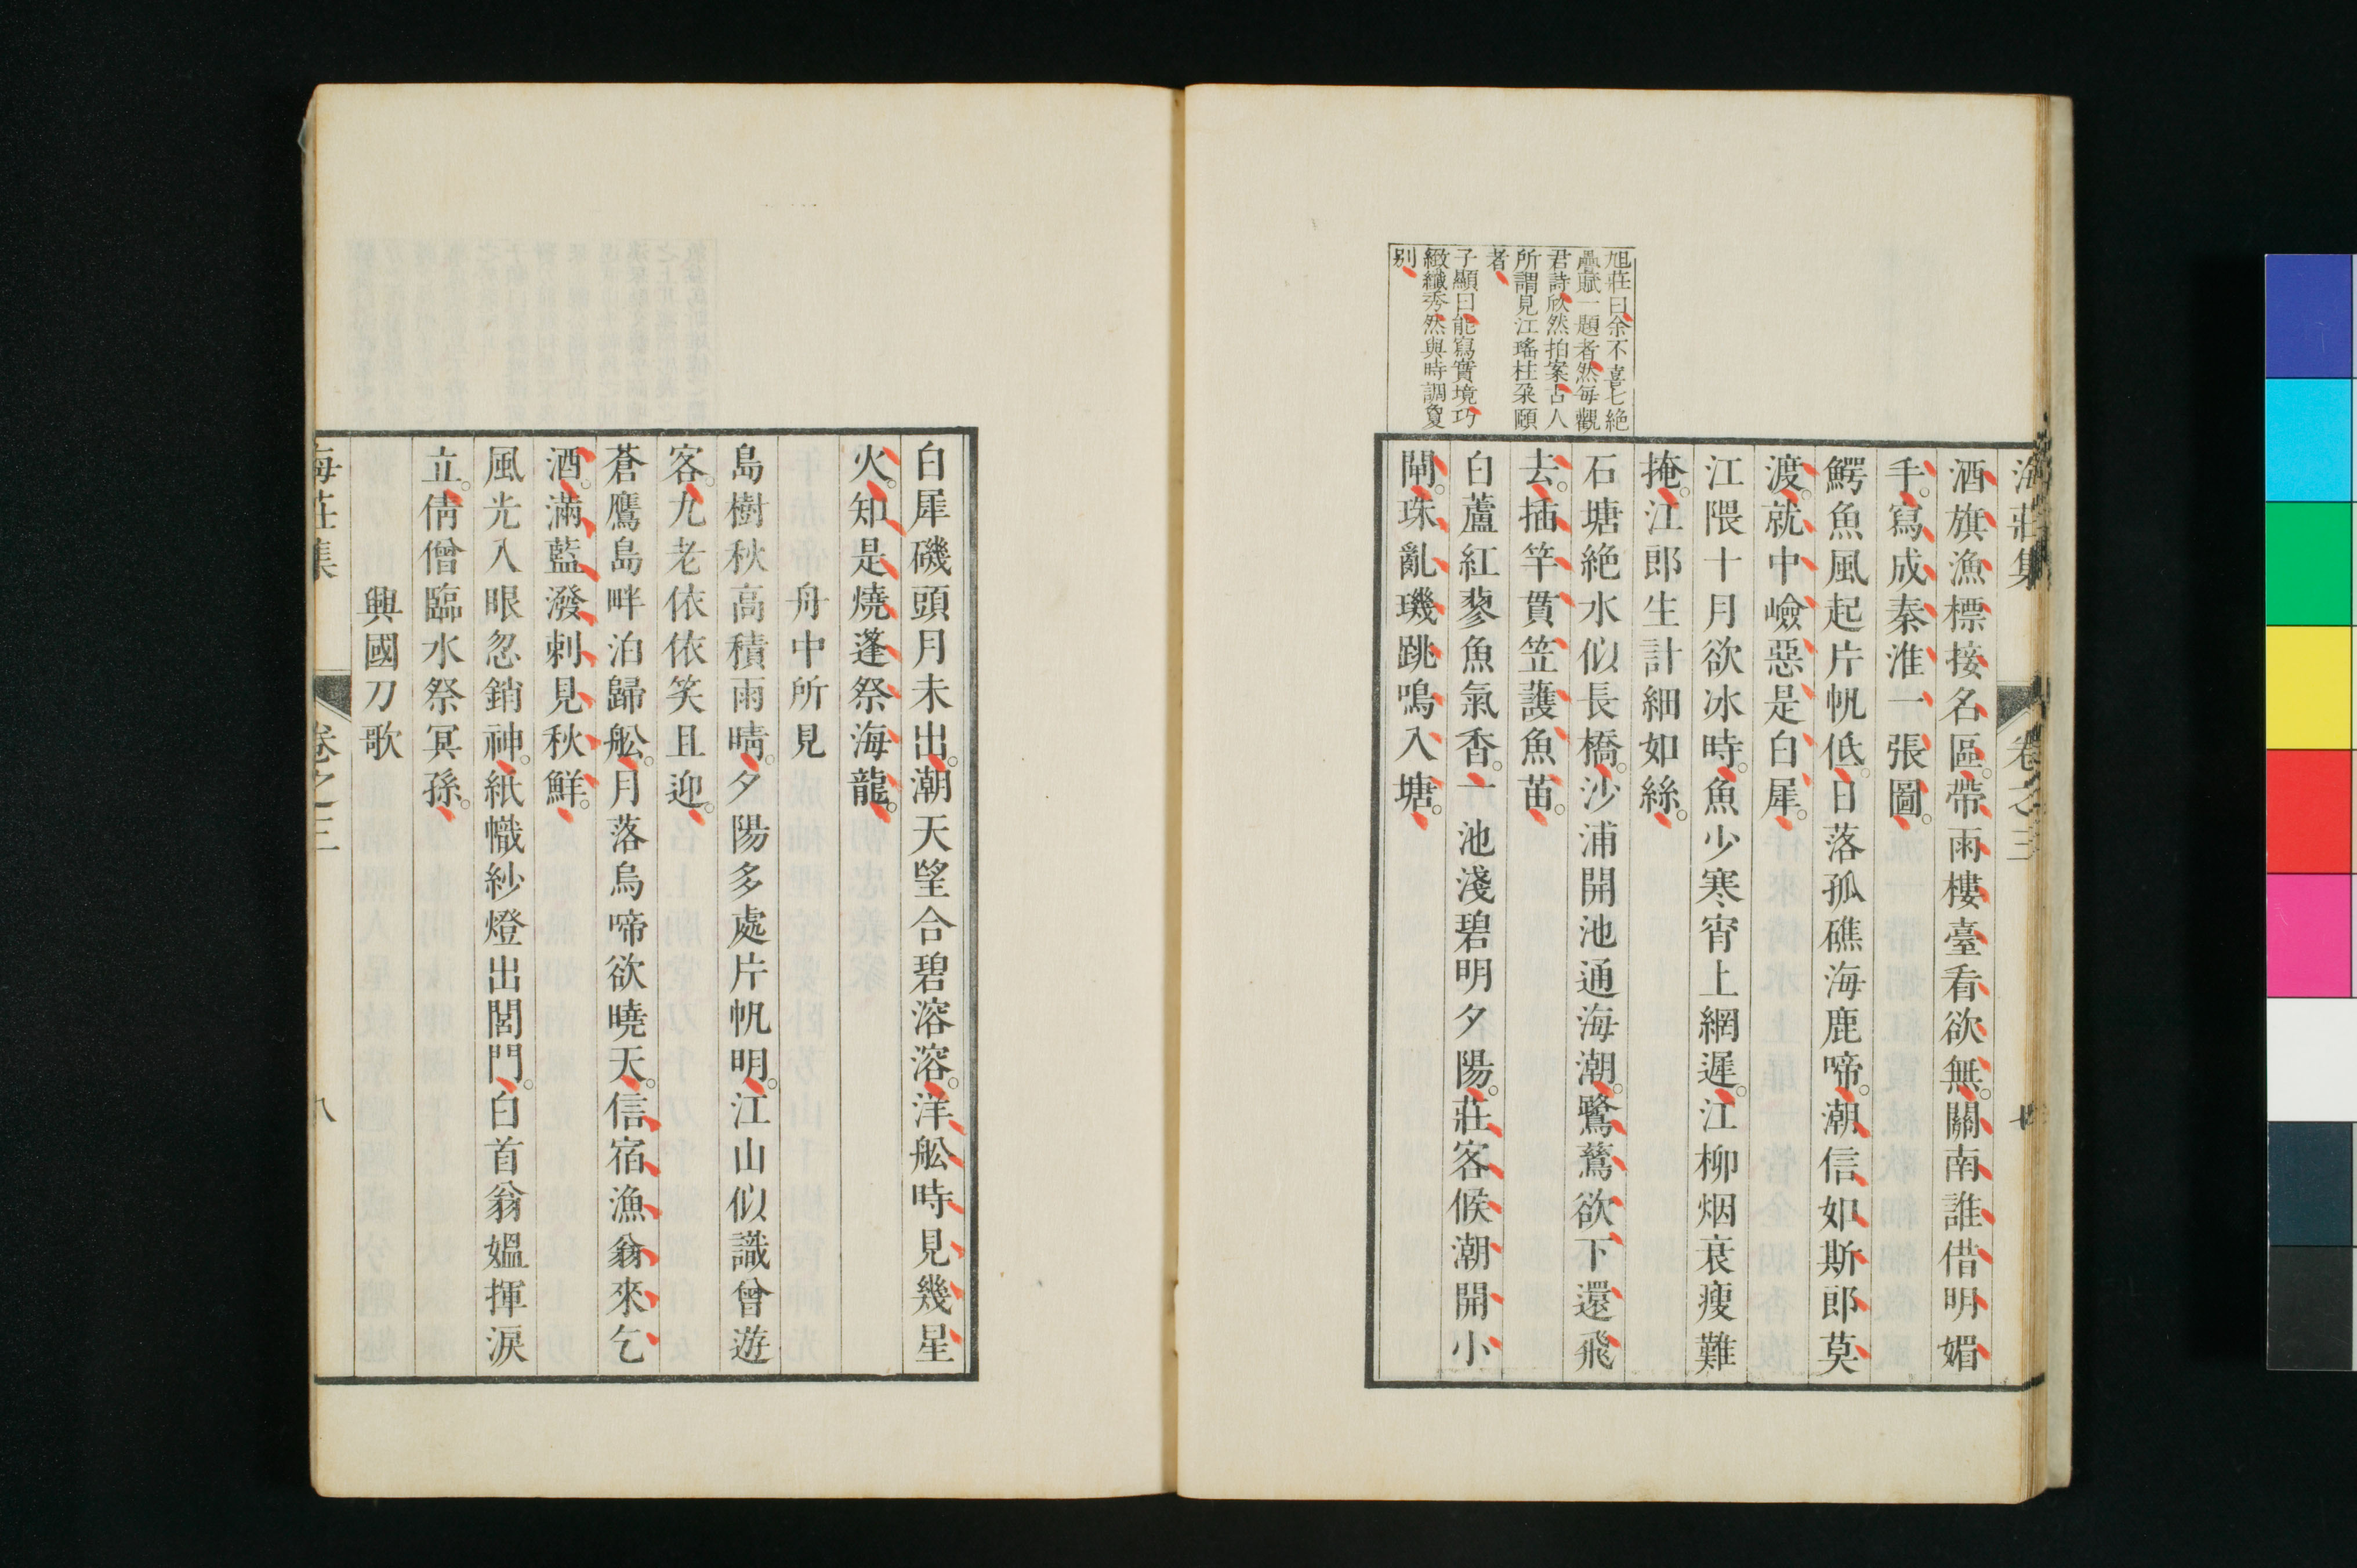 海莊集 卷之三 七
酒旗漁標接名區。帶雨樓臺看欲無。關南誰借明媚
手。寫成秦淮一張圖。
鰐魚風起片帆低。日落孤礁海鹿啼。潮信如斯郎莫
渡。就中嶮惡是白犀。
江隈十月欲冰時。魚少寒宵上網遲。江柳烟衰瘦難
掩。江郎生計細如絲。
石塘絶水似長橋。沙浦開池通海潮。鷺鶿欲下還飛
去。插竿貫笠護魚苗。
白蘆紅蓼魚氣香。一池淺碧明夕陽。莊客候潮開小
閘。珠亂璣跳鳴入塘。
旭莊曰余不喜七絶
疊賦一題者然每觀
君詩欣然拍案古人
所謂見江瑤柱朶頤
者
子顯曰能寫實境巧
緻纖秀然與時調夐
别
白犀磯頭月未出。潮天望合碧溶溶。洋舩時見幾星
火。知是燒蓬祭海龍。
舟中所見
島樹秋高積雨晴。夕陽多處片帆明。江山似識曾遊
客。九老依依笑且迎。
蒼鷹島畔泊歸舩。月落烏啼欲曉天。信宿漁翁來乞
酒。滿藍潑剌見秋鮮。
風光入眼忽銷神。紙幟紗燈出閭門。白首翁媼揮淚
立。倩僧臨水祭冥孫。
興國刀歌
海莊集 卷之三 八